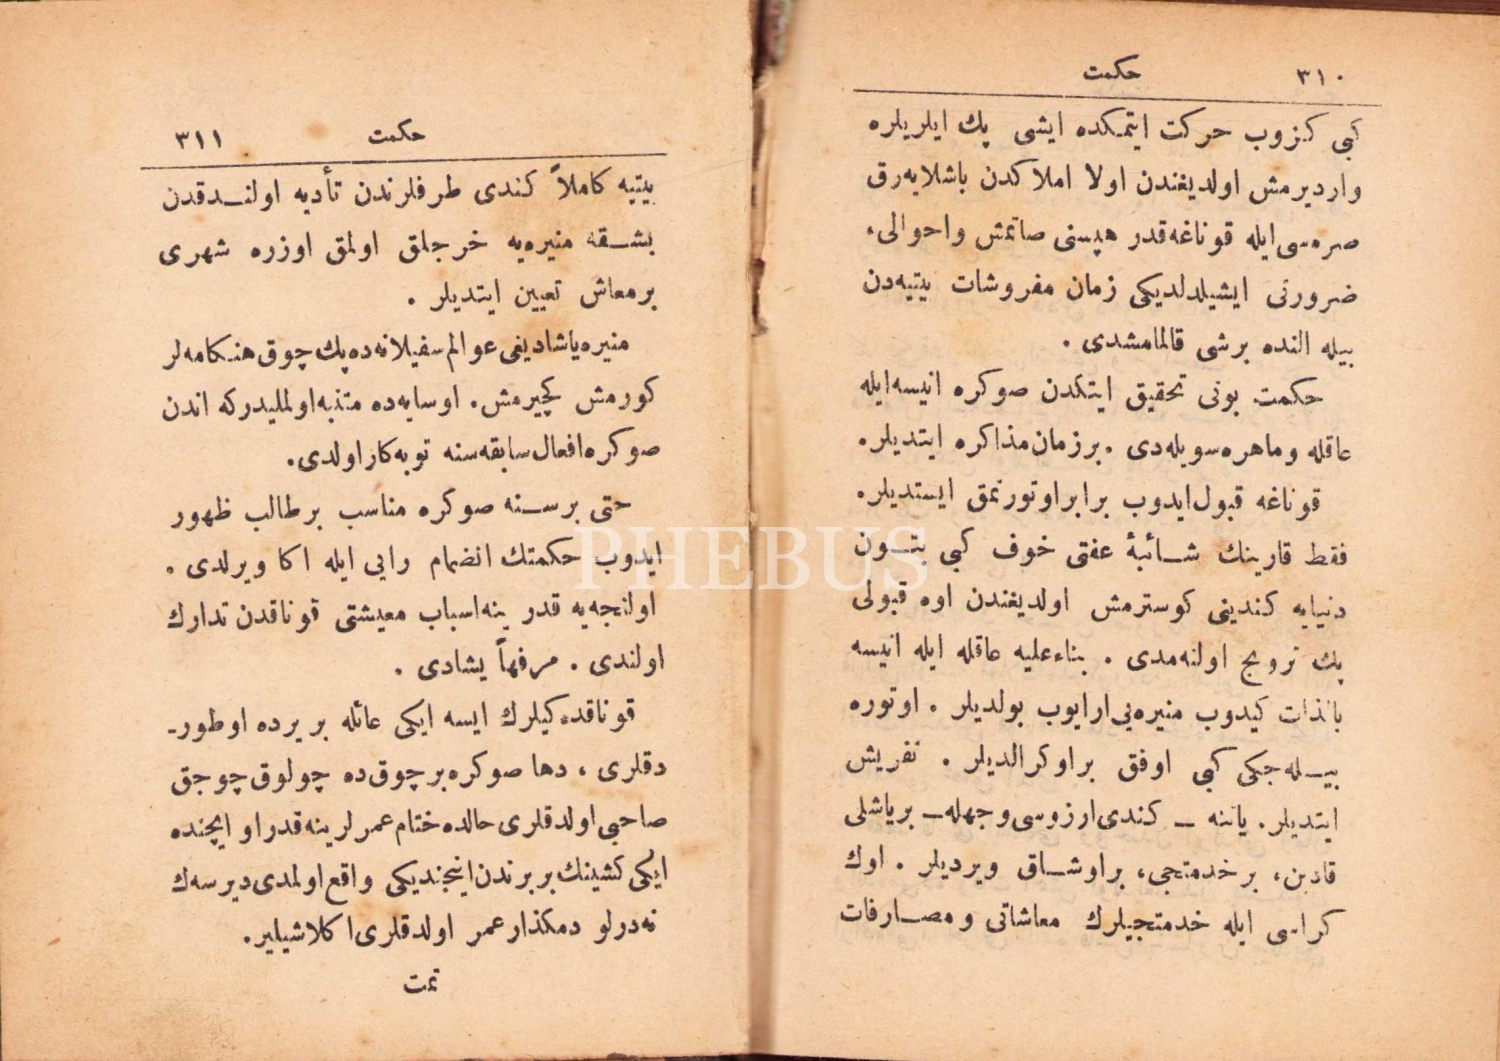 ٣١٠ حكمت
كبى كزوب حركت ايتمكده ايشى پك ايلريلره
وارديرمش اولديغندن اولا املاكدن باشلايه‌رق
صره‌سى ايله قوناغه قدر هپسنى صاتمش واحوالى،
ضرورتى ايشيدلديكى زمان مفروشات بيتيه‌دن
بيله النده برشى قالمامشدى .
حكمت بونى تحقيق ايتدكدن صوكره انيسه ايله
عاقله وماهره سويله‌دى . برزمان مذاكره ايتديلر.
قوناغه قبول ايدوب برابر اوتورتمق ايستديلر.
فقط قارينك شائبۀ عفتى خوف كبى بتون
دنيايه كندينى كوسترمش اولديغندن اوه قبولى
پك ترويج اولنه‌مدى . بناء عليه عاقله ايله انيسه
بالذات كيدوب منيره‌يى ارايوب بولديلر . اوتوره
بيله‌جكى كبى اوفق براوكرالديلر . تفريش
ايتديلر. ياننه ـ كندى ارزوسى وجهله ـ برياشلى
قادين، برخدمتجى، براوشاق ويرديلر . اوك
كراسى ايله خدمتجيلرك معاشاتى ومصارفات
حكمت ٣١١
بيتيه كاملاً كندى طرفلرندن تأديه اولندقدن
بشقه منيره‌يه خرجلق اولمق اوزره شهرى
برمعاش تعيين ايتديلر .
منيره ياشاديغى عوالم سفيلانه‌ده پك چوق هنكامه‌لر
كورمش كچيرمش. اوسايه‌ده متنبه اولمليدركه اندن
صوكره افعال سابقه‌سنه توبه‌كار اولدى.
حتى برسنه صوكره مناسب برطالب ظهور
ايدوب حكمتك انضمام رايى ايله اكا ويرلدى .
اولنجه‌يه قدر ينه اسباب معيشتى قوناقدن تدارك
اولندى . مرفهاً يشادى .
قوناقده‌كيلرك ايسه ايكى عائله بريرده اوطور-
دقلرى ، دها صوكره برچوق ده چولوق چوجق
صاحبى اولدقلرى حالده ختام عمرلرينه قدر او ايچنده
ايكى كشينك بربرندن اينجنديكى واقع اولمدى ديرسه‌ك
نه‌درلو دمكذار عمر اولدقلرى اكلاشيلير.
تمت
PHEBUS